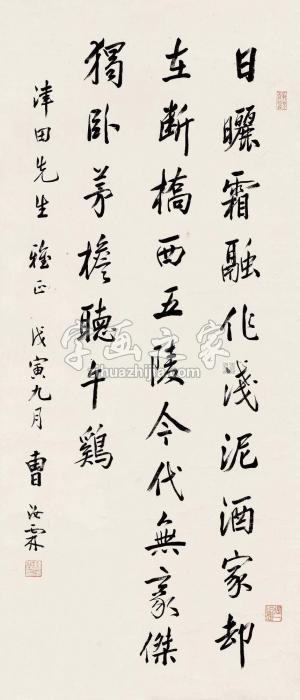 日曬霜融作淺泥酒家却
在断橋西五陵今代無豪傑
獨卧茅檐聽午鷄
津田先生雅正 戊寅九月 曹汝霖
字画之家
zihuazhijia.com